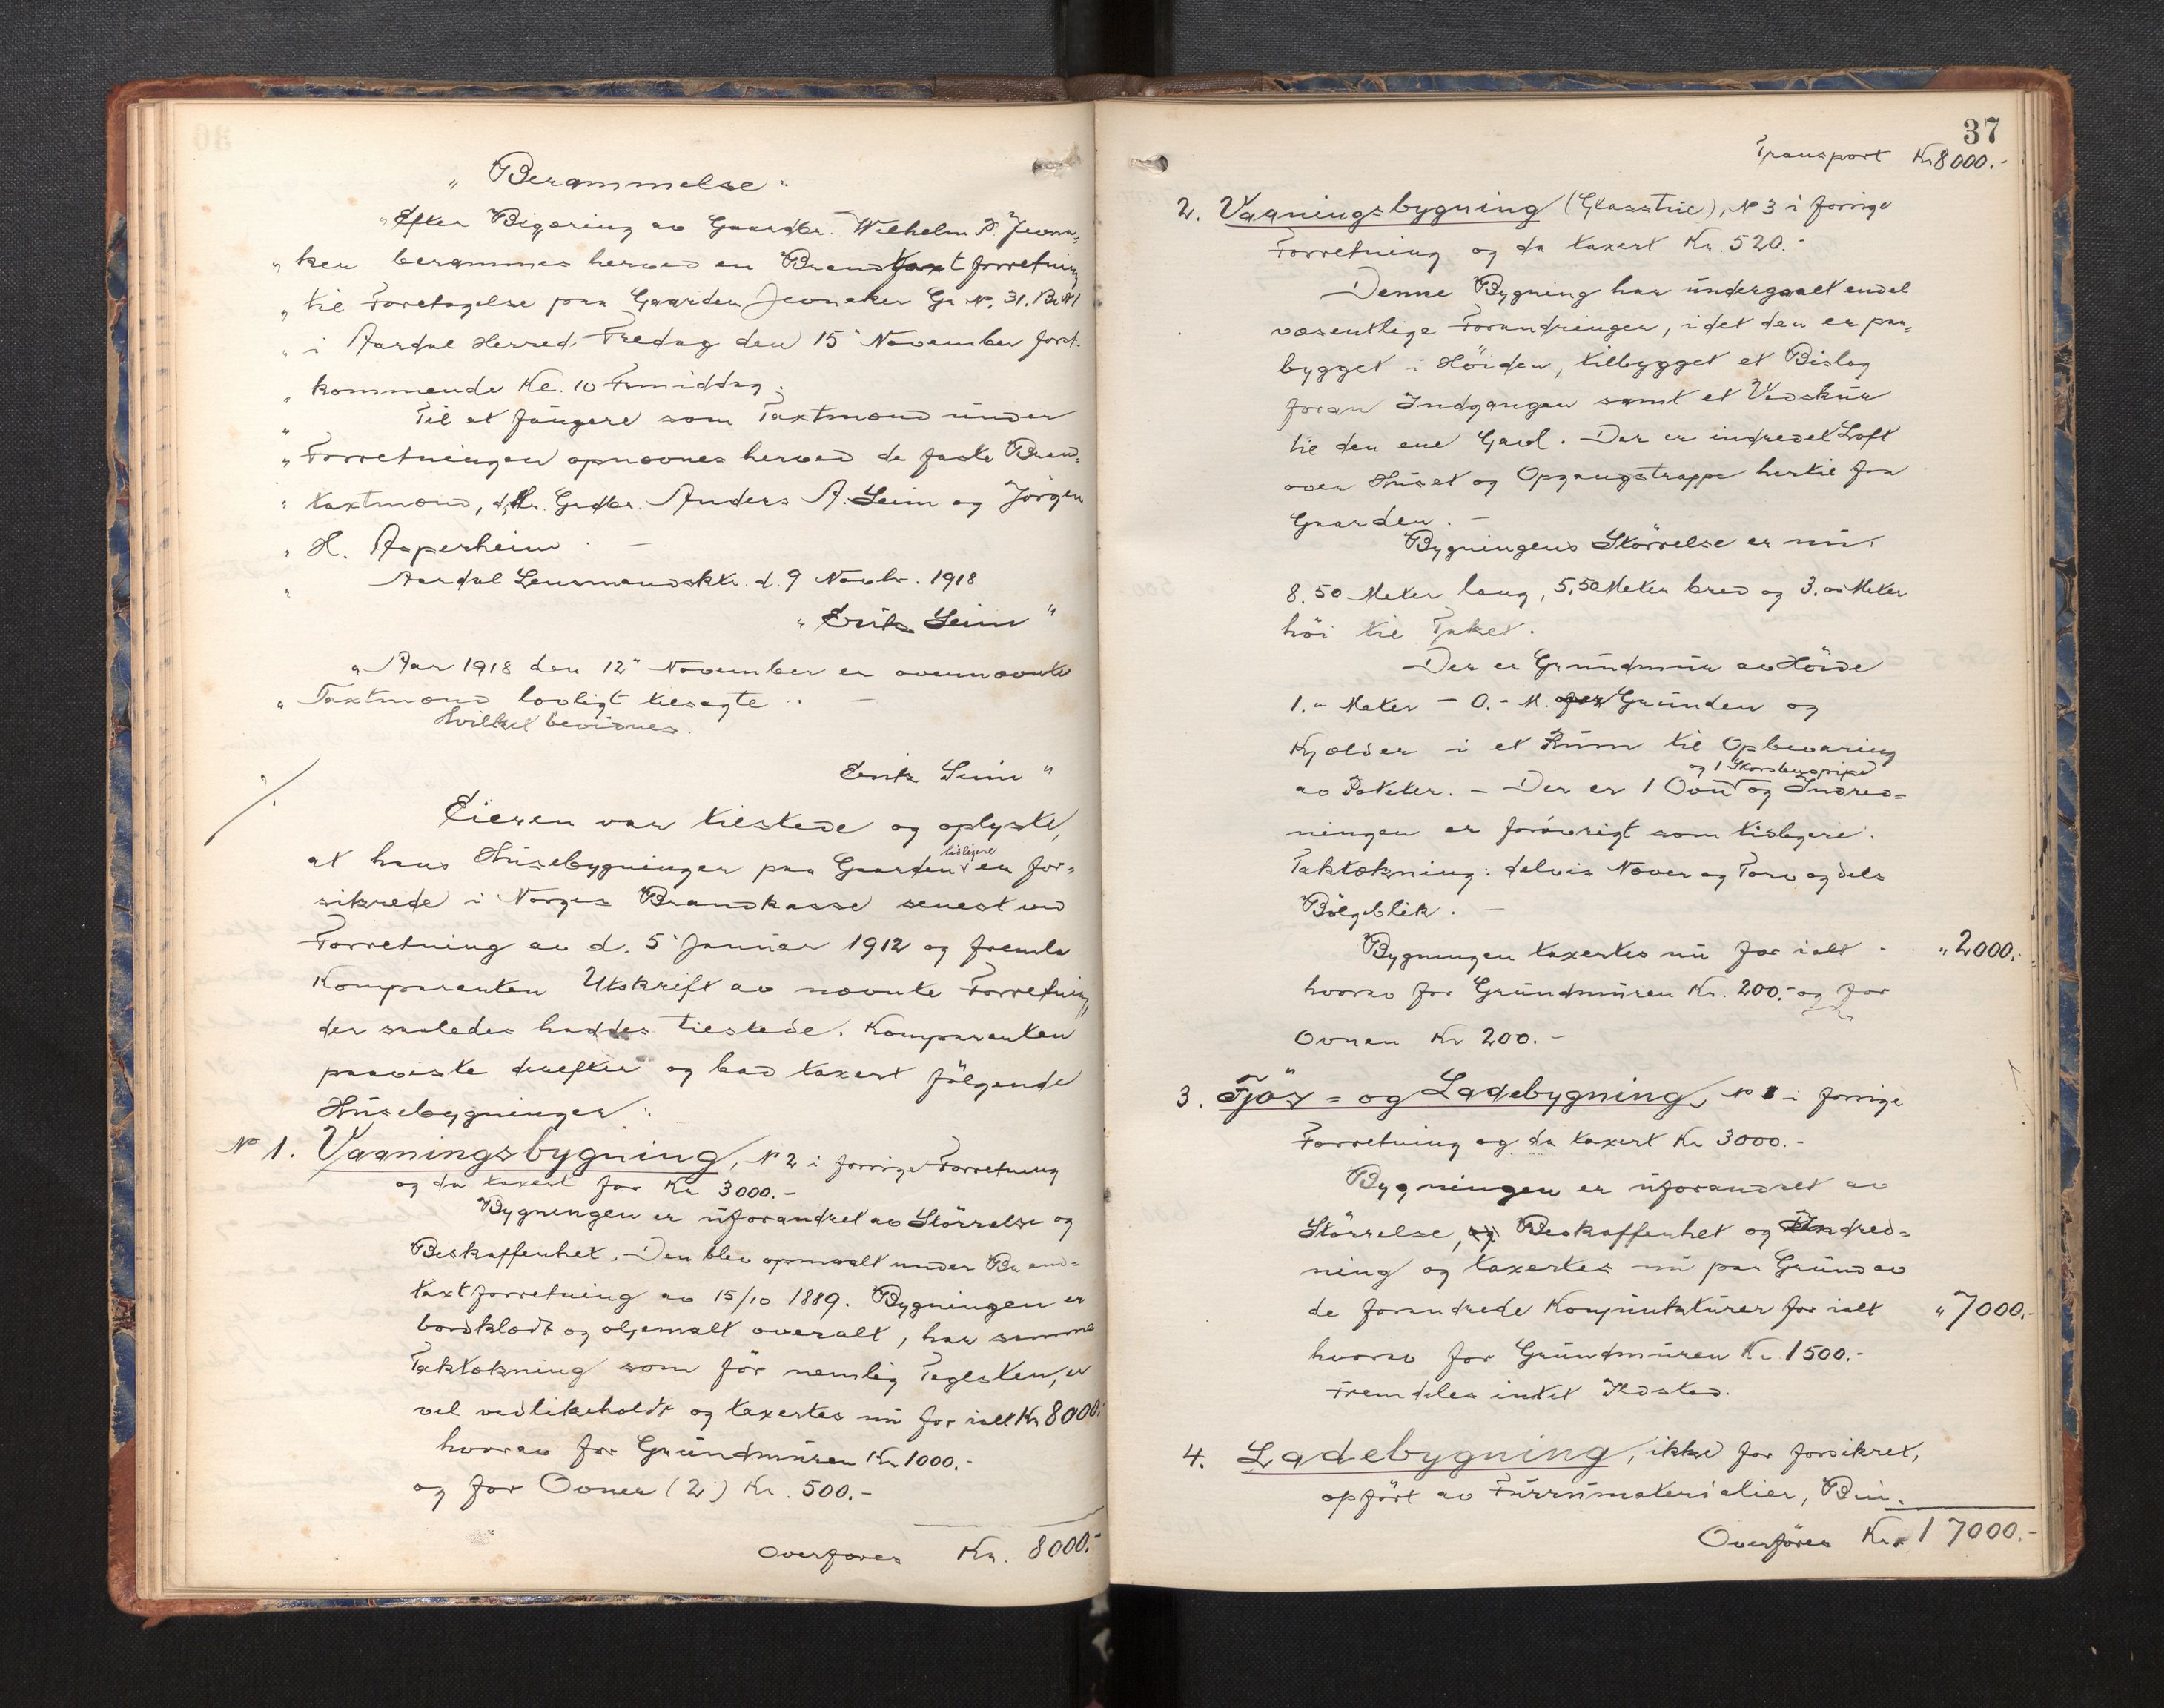 „ Berammelse:
„ Efter Begæring av Gaardbr. Wilhelm P. Jevna-
„ ker berammes herved en Brandtaxtforretning
„ til Foretagelse paa Gaarden Jevnaker Gr. N. 31. Br N 1
„ i Aardal Herred, Fredag den 15 November først-
„ kommende Kl. 10 Formiddag.
„ Til at fungere som Taxtmænd under
„ Forretningen opnævnes herved de faste Brand-
„ taxtmænd, d'Hr. Grdbr. Anders A. Seim og Jörgen
„ H. Asperheim. —
„ Aardal Lensmandsktr. d. 9 Novbr. 1918
„ Erik Seim "
„ Aar 1918 den 12 November er ovennævnte
„ Taxtmænd lovligt tilsagte. —
Hvilket bevidnes.
Erik Seim "
Eieren var tilstede og oplyste,
at hans Husebygninger paa Gaarden tidligere er for-
sikrede i Norges Brandkasse senest ved
Forretning av d. 5 Januar 1912 og fremla
Komparenten Utskrift av nævnte Forretning,
der saaledes haddes tilstede. Komparenten
paaviste derefter og bad taxert fölgende
Husebygninger:
N 1. Vaaningsbygning, N 2 i forrige Forretning
og da taxert for Kr 3000.-
Bygningen er uforandret av Störrelse og
Beskaffenhet. Den blev opmaalt under Brand-
taxtforretning av 15/10 1889. Bygningen er
bordklædt og oljemalt overalt, har samme
Taktækning som för nemlig Teglsten, er
vel vedlikeholdt og taxertes nu for ialt Kr 8000.-
hvorav for Grundmuren Kr 1000.-
og for Ovner (2) Kr. 500.-
Overföres Kr. 8000.-
37
Transport Kr 8000.-
2. Vaaningsbygning (Glasstue), N 3 i forrige
Forretning og da taxert Kr. 520.-
Denne Bygning har undergaaet endel
væsentlige Forandringer, idet den er paa-
bygget i Höiden, tilbygget et Bislag
foran Indgangen samt et Vedskur
til den ene Gavl. Der er indredet Loft
over Huset og Opgangstrappe hertil fra
Gaarden. —
Bygningens Störrelse er nu:
8.50 Meter lang, 5,50 Meter bred og 3.00 Meter
höi til Taket.
Der er Grundmur av Höide
1.- Meter — 0.- M. over Grunden og
Kjælder i et Rum til Opbevaring
og 1 Skorstenspipe
av Poteter. — Der er 1 Ovn og Indred-
ningen er forövrigt som tidligere.
Taktækning: delvis Næver og Torv og dels
Bölgeblik. —
Bygningen taxertes nu for ialt - „ 2000.-
hvorav for Grundmuren Kr. 200.- og for
Ovnen Kr 200.-
3. Fjös- og Ladebygning, N 1 i forrige
Forretning og da taxert Kr 3000.-
Bygningen er uforandret av
Störrelse, Beskaffenhet og Indred-
ning og taxertes nu paa Grund av
de forandrede Konjunkturer for ialt „ 7000.-
hvorav for Grundmuren Kr. 1500.-
Fremdeles intet Ildsted.
4. Ladebygning, ikke för forsikret,
opfört av Furumaterialier, Bin-
Overföres Kr. 17000.-